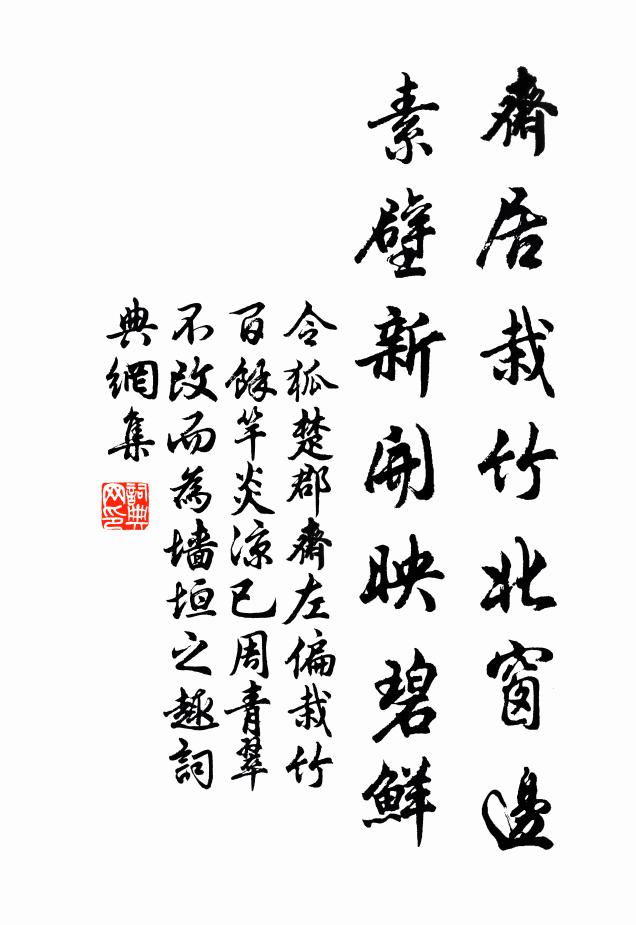 齋居栽竹北窗邊
素壁新開映碧鮮
令狐楚郡齋左偏栽竹
百餘竿炎涼已周青翠
不改而為墻垣之趣詞
典網集
詞典
网印